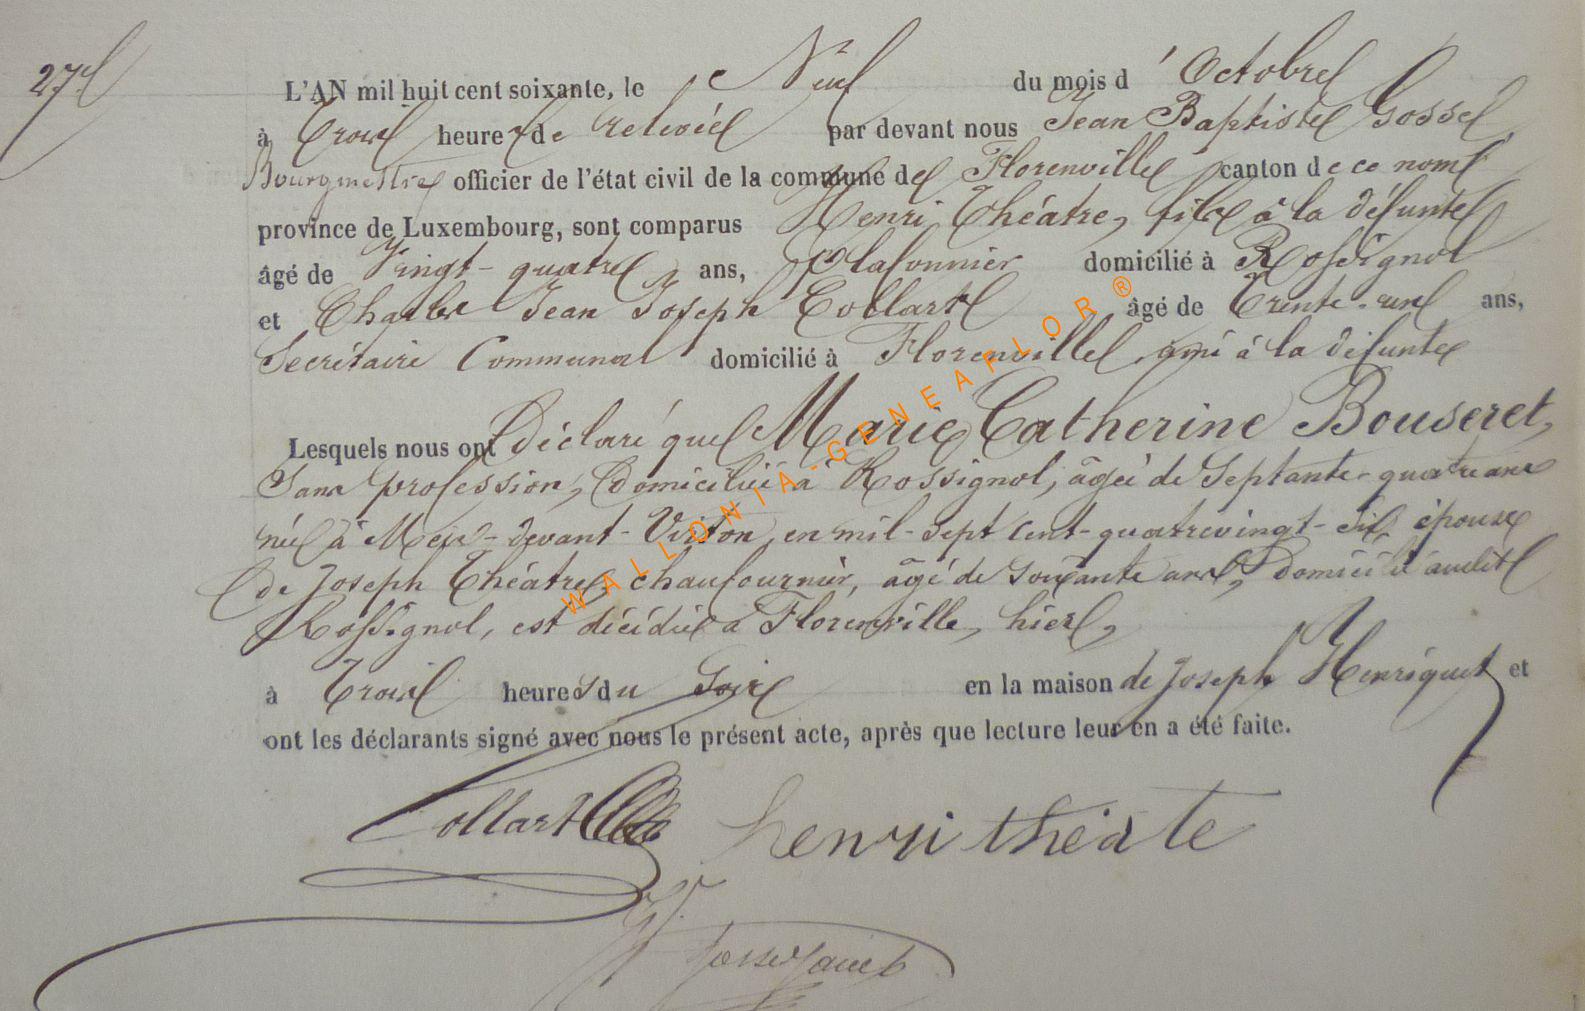 27.
L'AN mil huit cent soixante, le Neuf du mois d'Octobre
à Trois heures de relevée par devant nous Jean Baptiste Gosse,
Bourgmestre officier de l'état civil de la commune de Florenville canton de ce nom
province de Luxembourg, sont comparus Henri Théatre, fils à la défunte
âgé de Vingt-quatre ans, Plafonnier domicilié à Rossignol
et Charles Jean Joseph Collart âgé de Trente-un ans,
Secrétaire Communal domicilié à Florenville, ami à la défunte
Lesquels nous ont déclaré que Marie Catherine Bouseret,
Sans profession, Domiciliée à Rossignol, âgée de Septante-quatre ans
née à Meix-devant-Virton, en mil-sept cent-quatrevingt-six, épouse
de Joseph Théatre, chaufournier, âgé de soixante ans, Domicilié audit
Rossignol, est décédée à Florenville, hier,
à Trois heures du Soir en la maison de Joseph Henriquet et
ont les déclarants signé avec nous le présent acte, après que lecture leur en a été faite.
Collart henri théate
WALLONIA-GENEAFLOR ®